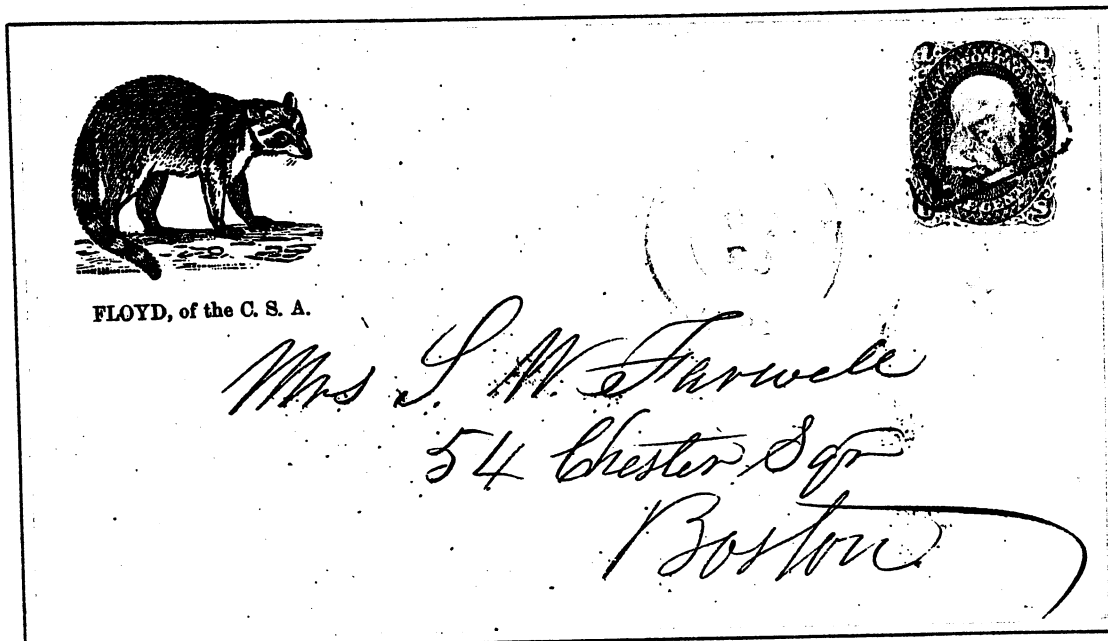 FLOYD, of the C. S. A.
Mrs S. W. Farwell
54 Chester Sqr
Boston